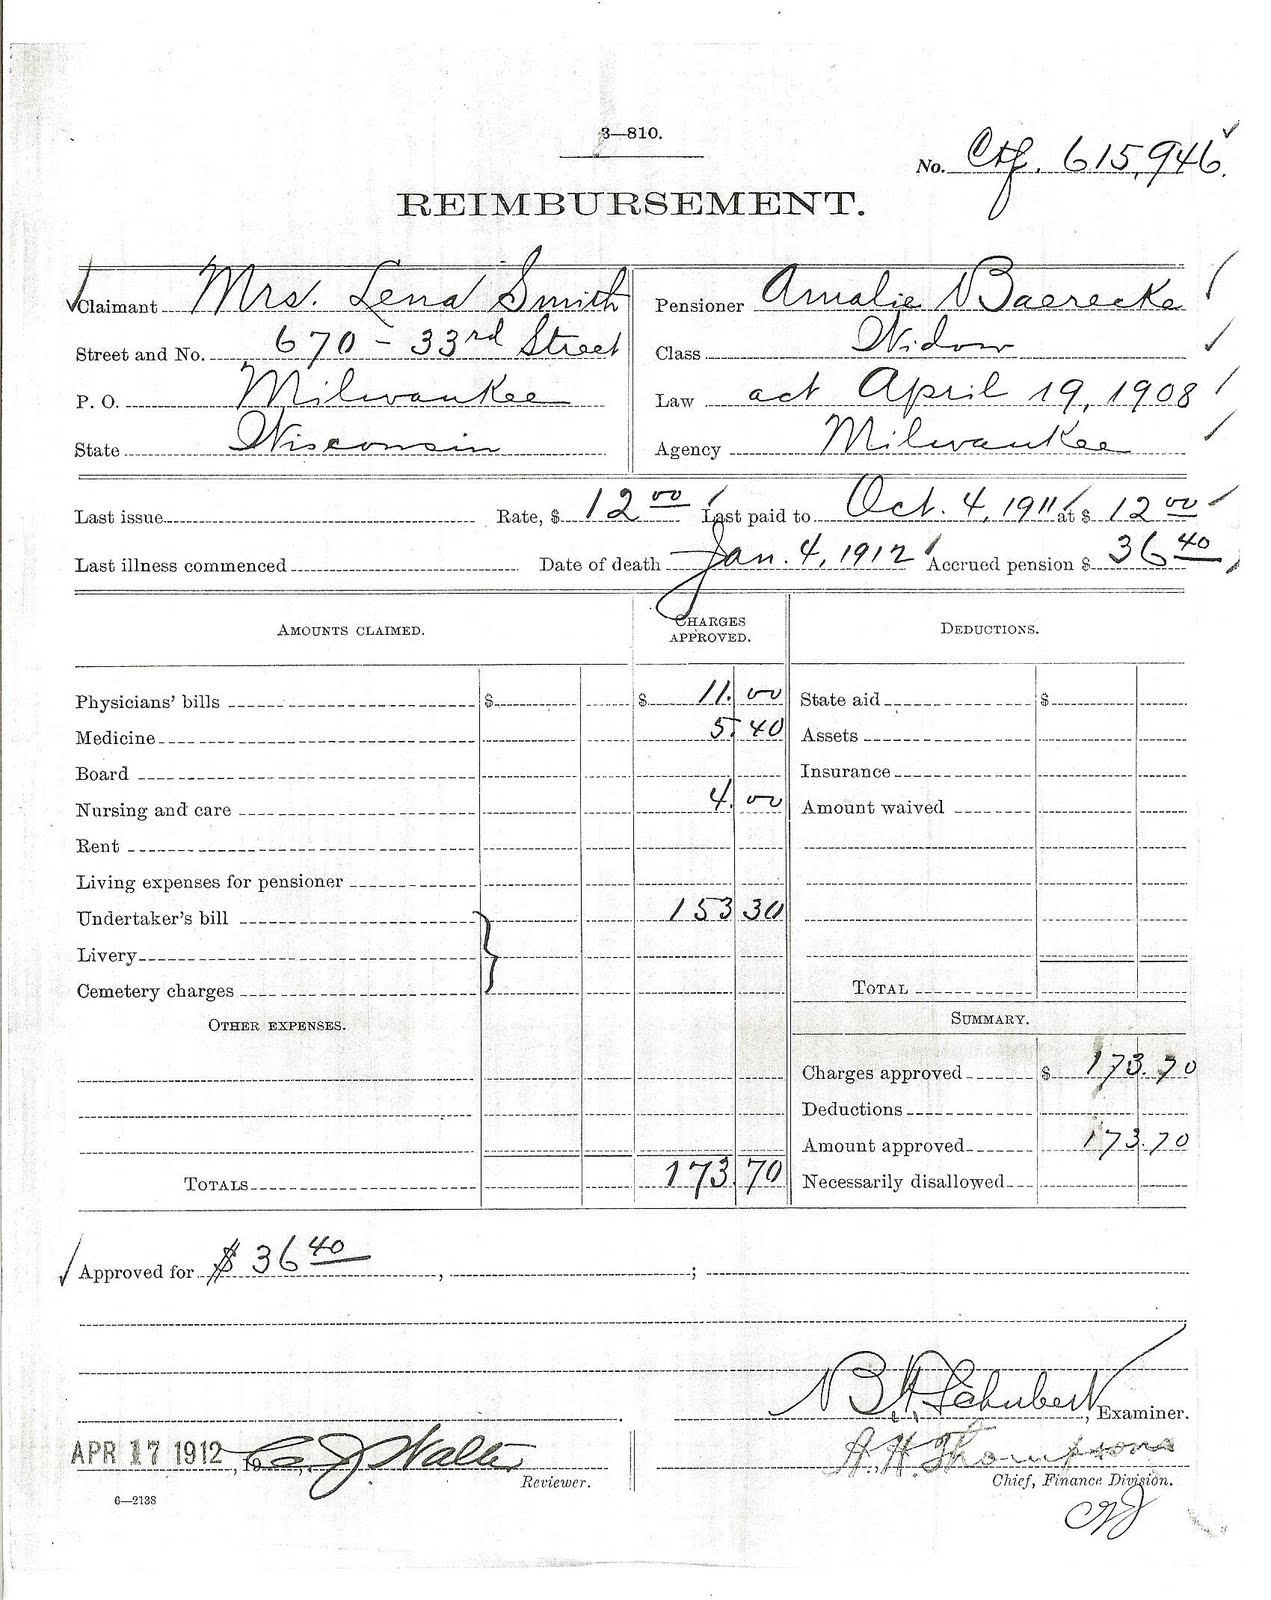 3—810.
No. Ctf. 615,946
REIMBURSEMENT.
Claimant Mrs. Lena Smith
Street and No. 670 - 33rd Street
P. O. Milwaukee
State Wisconsin
Pensioner Amalie Baerecke
Class Widow
Law act April 19, 1908
Agency Milwaukee
Last issue Rate, $ 12 00 Last paid to Oct. 4, 1911 at $ 12 00
Last illness commenced Date of death Jan. 4, 1912 Accrued pension $ 36 40
AMOUNTS CLAIMED. CHARGES APPROVED.
Physicians' bills $ $ 11. 00
Medicine 5. 40
Board
Nursing and care 4. 00
Rent
Living expenses for pensioner
Undertaker's bill 153 30
Livery
Cemetery charges
OTHER EXPENSES.
TOTALS 173. 70
DEDUCTIONS.
State aid $
Assets
Insurance
Amount waived
TOTAL
SUMMARY.
Charges approved $ 173. 70
Deductions
Amount approved 173. 70
Necessarily disallowed
Approved for $ 36 40 , ;
Schubert, Examiner.
APR 17 1912, 19 , J Walter
Reviewer.
A. H. Thompson
Chief, Finance Division.
6—2138